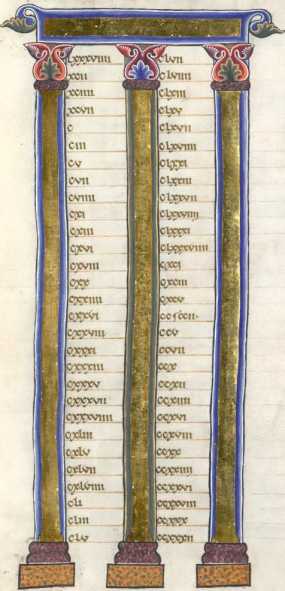 lxxxviiii
xcii
xciiii
xcvii
c
ciii
cv
cvii
cviiii
cxi
cxiii
cxvi
cxviii
cxx
cxxiiii
cxxvi
cxxviii
cxxxi
cxxxiii
cxxxv
cxxxvii
cxxxviiii
cxliii
cxlv
cxlvii
cxlviiii
cli
cliii
clv
clvii
clviiii
clxiii
clxv
clxvii
clxviiii
clxxi
clxxiii
clxxvii
clxxviiii
clxxxi
clxxxviiii
cxci
cxciii
cxcv
ccv
ccvii
ccx
ccxii
ccxiiii
ccxvi
ccxviii
ccxx
ccxxiiii
ccxxvi
ccxxviii
ccxxx
ccxxxii